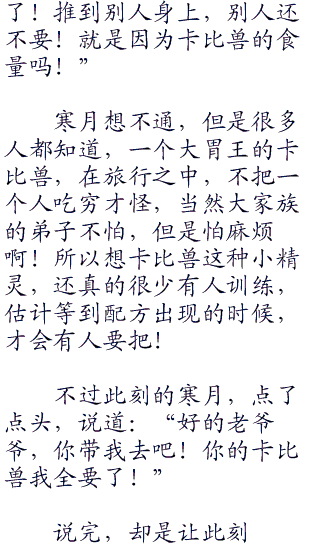 了！推到别人身上，别人还
不要！就是因为卡比兽的食
量吗！”
寒月想不通，但是很多
人都知道，一个大胃王的卡
比兽，在旅行之中，不把一
个人吃穷才怪，当然大家族
的弟子不怕，但是怕麻烦
啊！所以想卡比兽这种小精
灵，还真的很少有人训练，
估计等到配方出现的时候，
才会有人要把！
不过此刻的寒月，点了
点头，说道：“好的老爷
爷，你带我去吧！你的卡比
兽我全要了！”
说完，却是让此刻